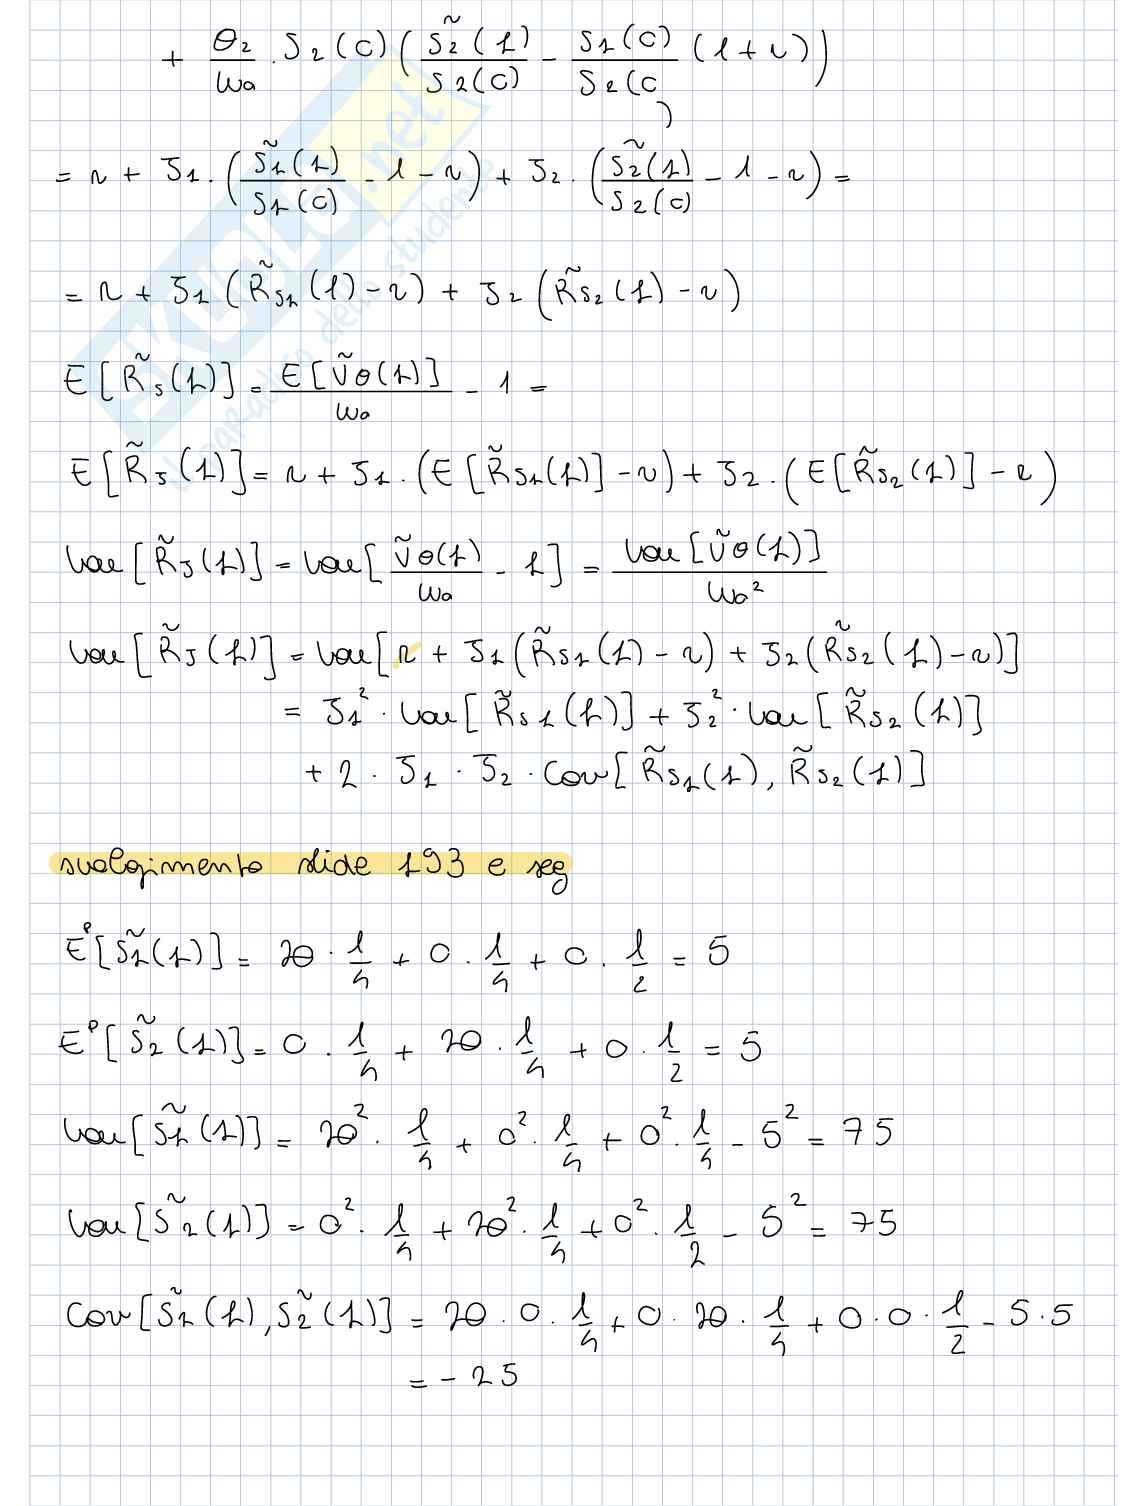 + θ₂/w₀ · S₂(0) ( S̃₂(1)/S₂(0) - S₁(0)/S₂(0) (1+r) )
= r + J₁ · ( S̃₁(1)/S₁(0) - 1 - r ) + J₂ · ( S̃₂(1)/S₂(0) - 1 - r ) =
= r + J₁ ( R̃s₁(1) - r ) + J₂ ( R̃s₂(1) - r )
E[R̃s(1)] = E[Ṽθ(1)]/w₀ - 1 =
E[R̃J(1)] = r + J₁ · (E[R̃s₁(1)] - r) + J₂ · (E[R̃s₂(1)] - r)
Var[R̃J(1)] = Var[Ṽθ(1)/w₀ - 1] = Var[Ṽθ(1)]/w₀²
Var[R̃J(1)] = Var[r + J₁(R̃s₁(1) - r) + J₂(R̃s₂(1) - r)]
= J₁² · Var[R̃s₁(1)] + J₂² · Var[R̃s₂(1)]
+ 2 · J₁ · J₂ · Cov[R̃s₁(1), R̃s₂(1)]
svolgimento slide 193 e seg
Eᴾ[S̃₁(1)] = 20 · 1/4 + 0 · 1/4 + 0 · 1/2 = 5
Eᴾ[S̃₂(1)] = 0 · 1/4 + 20 · 1/4 + 0 · 1/2 = 5
Var[S̃₁(1)] = 20² · 1/4 + 0² · 1/4 + 0² · 1/4 - 5² = 75
Var[S̃₂(1)] = 0² · 1/4 + 20² · 1/4 + 0² · 1/2 - 5² = 75
Cov[S̃₁(1), S̃₂(1)] = 20 · 0 · 1/4 + 0 · 20 · 1/4 + 0 · 0 · 1/2 - 5 · 5
= - 25
SKUOLA.net
il paradiso dello studente